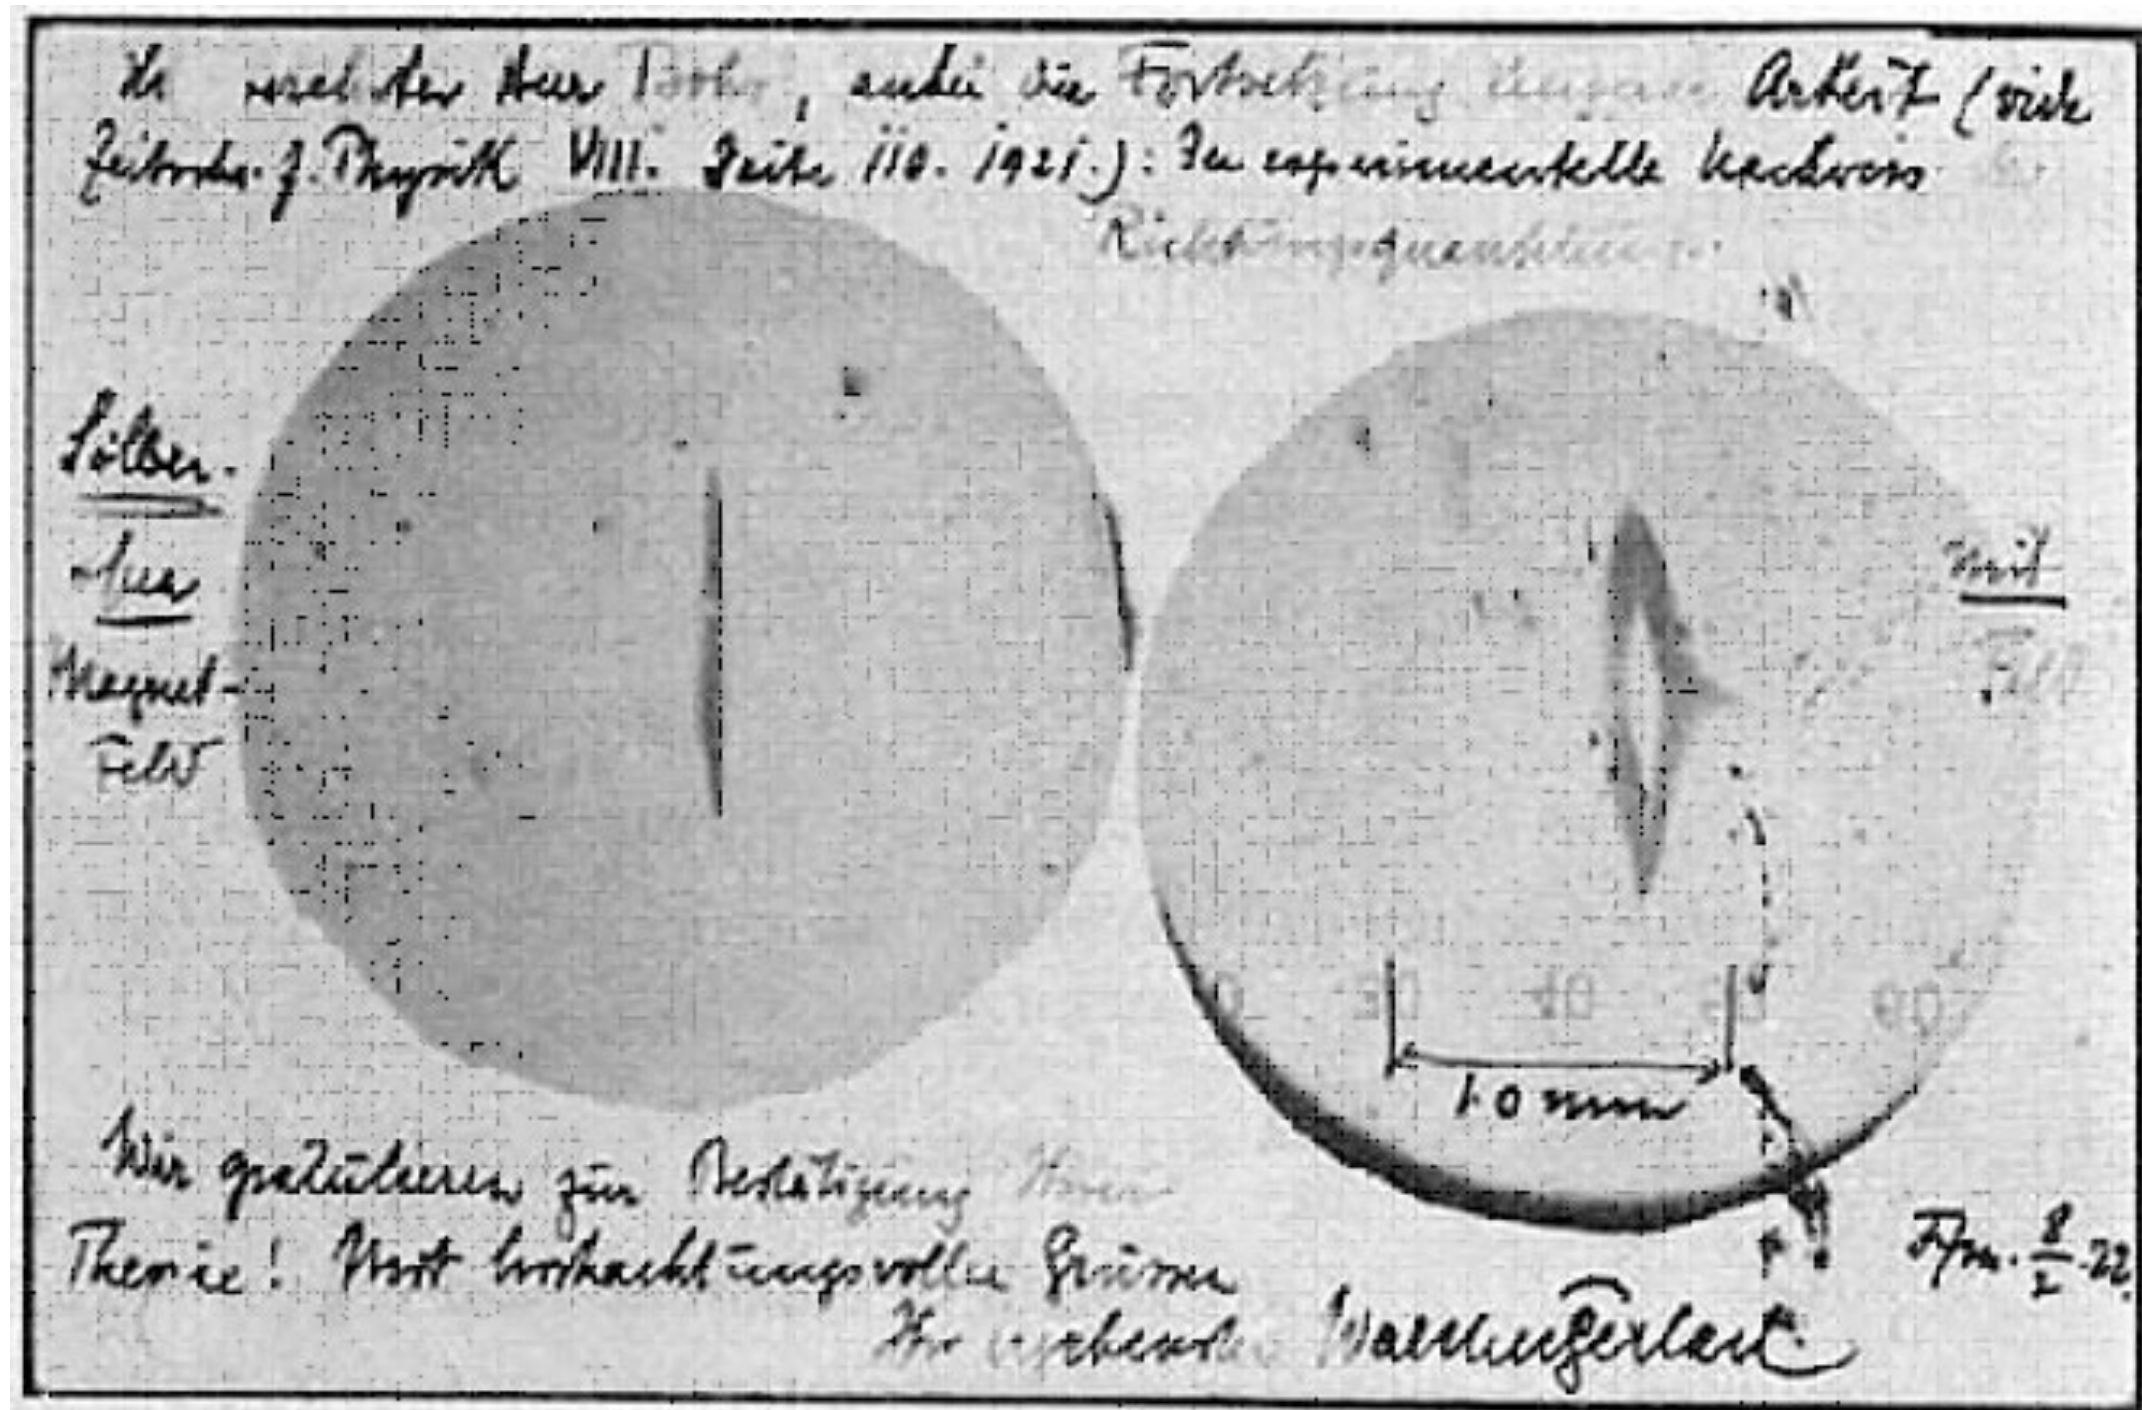 verehrter Herr Bohr, anbei die Fortsetzung unserer Arbeit (vide
Zeitschr. f. Physik VIII. Seite 110. 1921.): Der experimentelle Nachweis
Richtungsquantelung.
Silber.
Magnet-
Feld
Mit
Feld
1.0 mm
Wir gratulieren zur Bestätigung Ihrer
Theorie! Mit hochachtungsvollen Grüssen
Ihr ergebenster Walther Gerlach.
Ffm. 8/2.22.